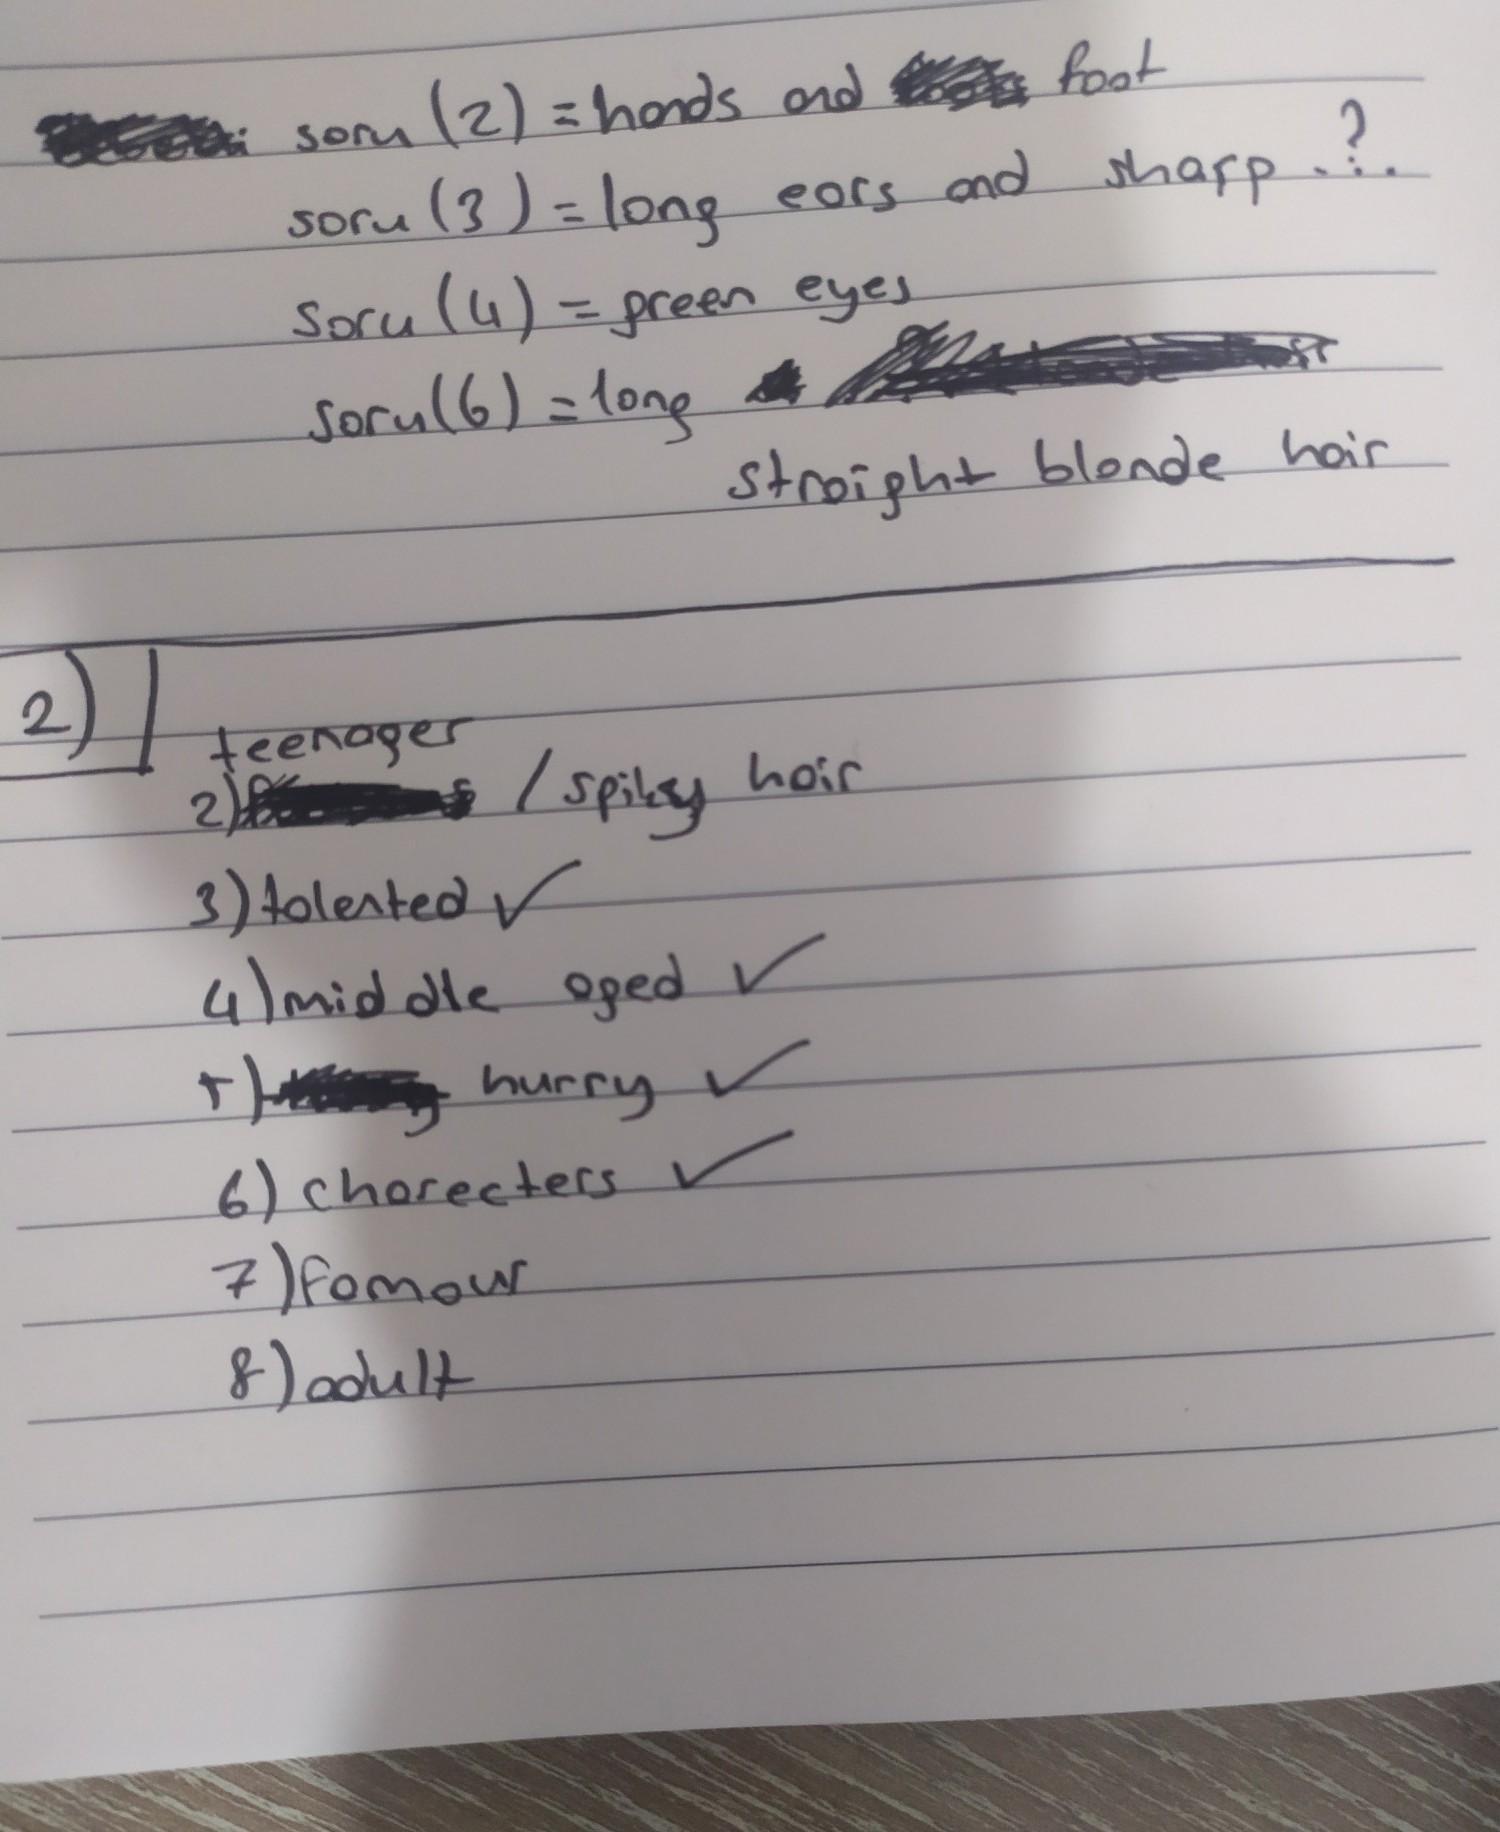 soru (2) = hands and foot
soru (3) = long ears and sharp . ? .
soru (4) = green eyes
soru (6) = long
straight blonde hair
2)
teenager
2) / spiky hair
3) talented ✓
4) middle aged ✓
5) hurry ✓
6) charecters ✓
7) famous
8) adult